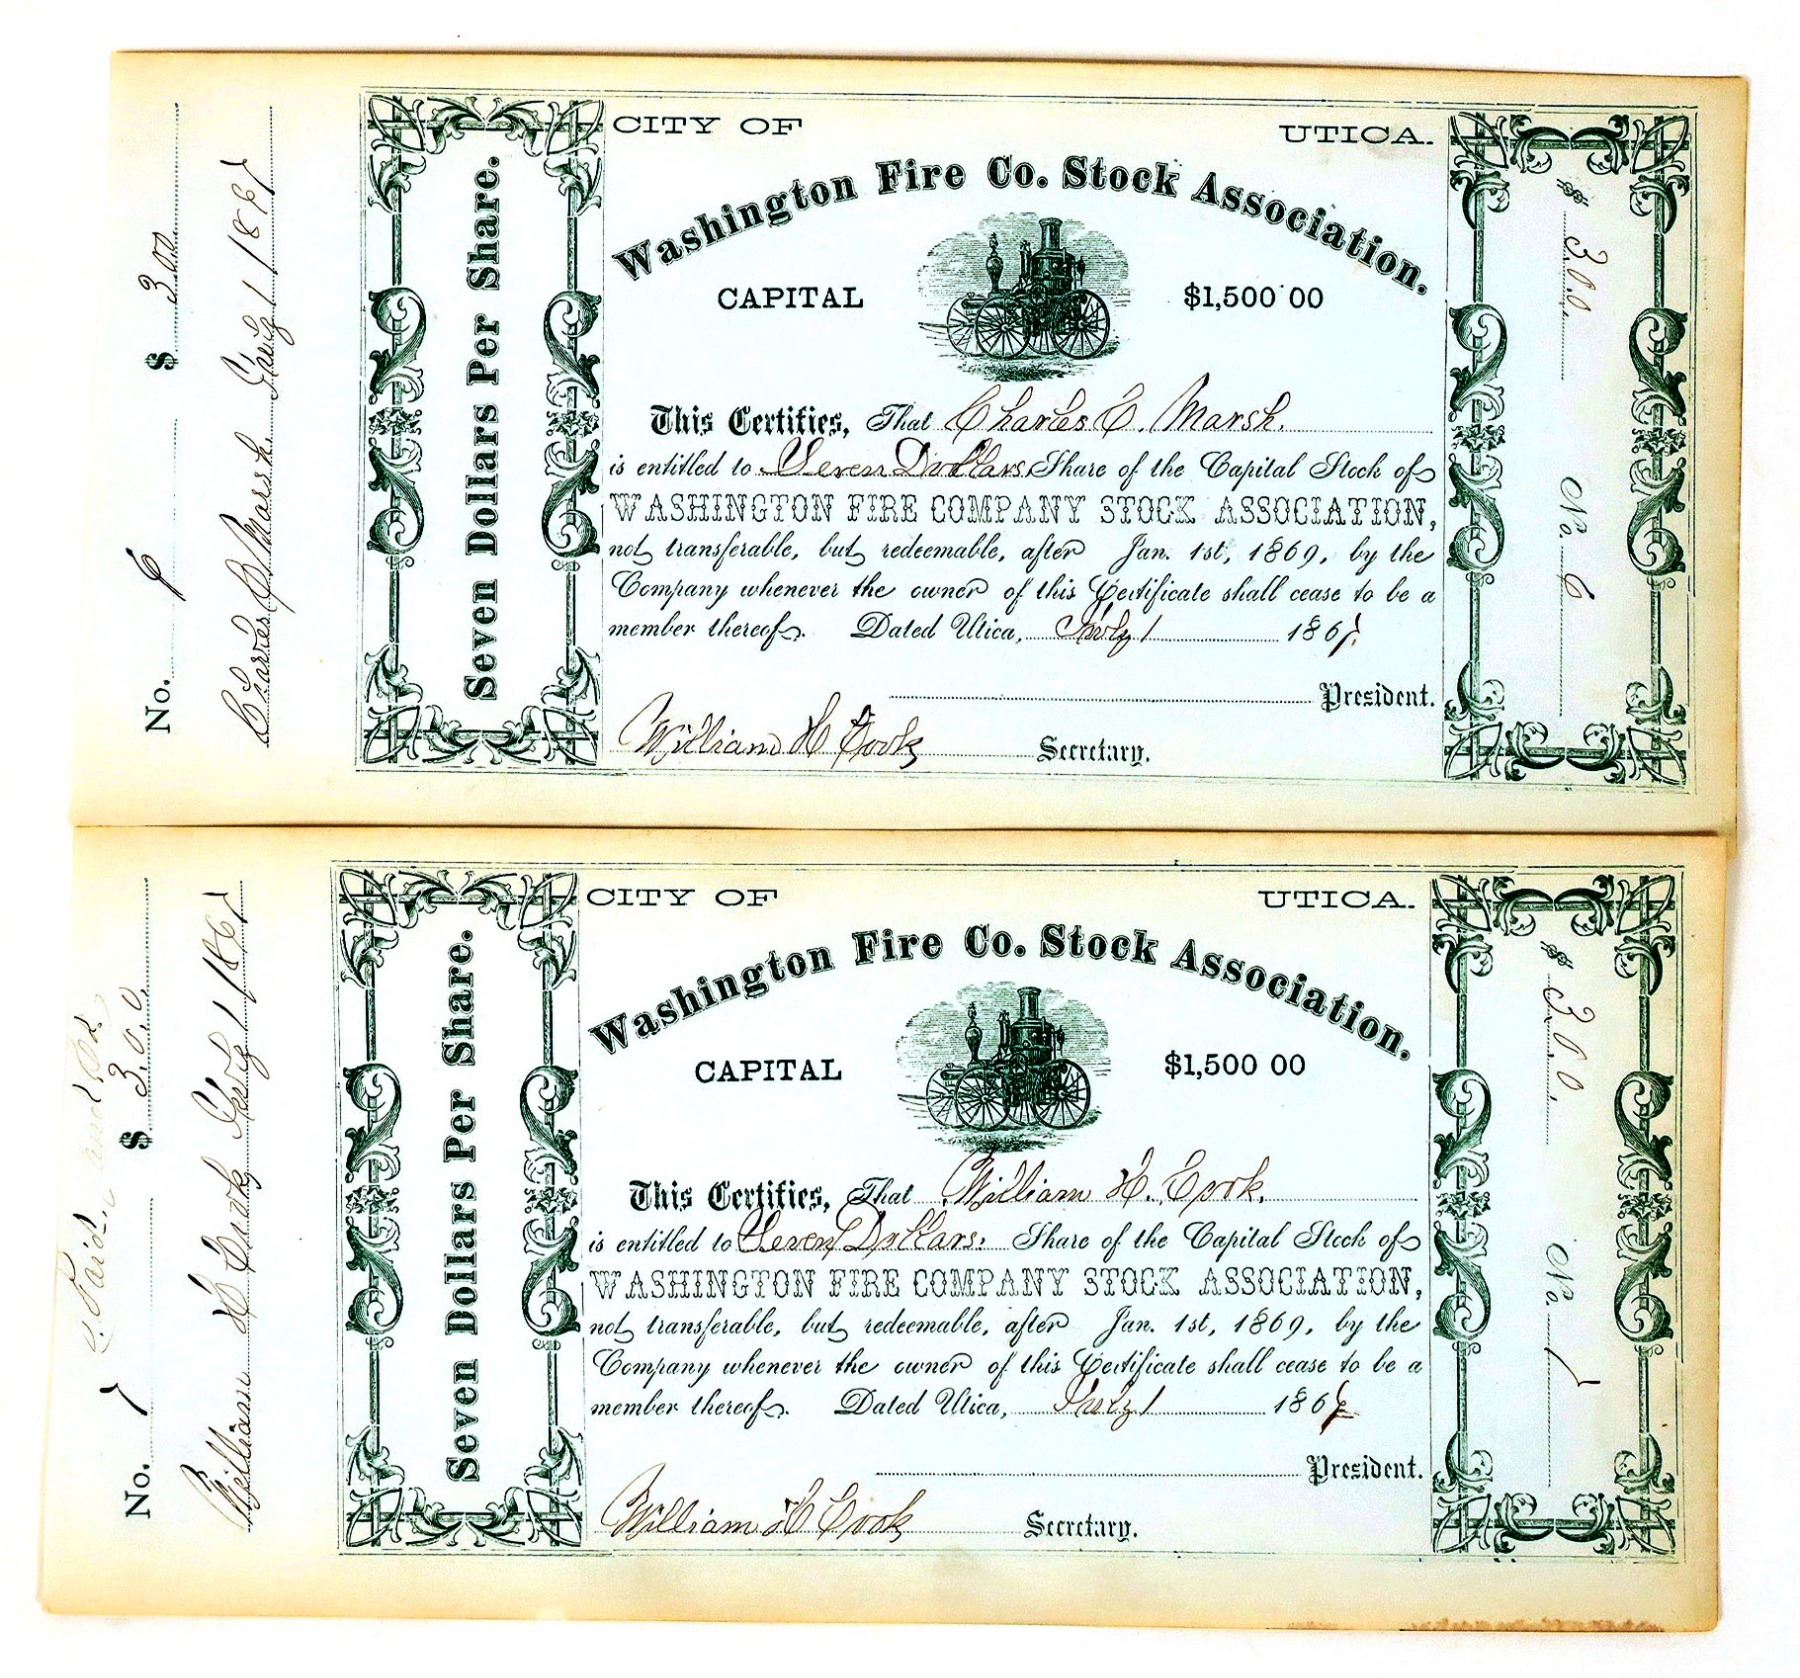 No. 6 $ 3.00
Charles C. Marsh July 1 1867
Seven Dollars Per Share.
CITY OF UTICA.
Washington Fire Co. Stock Association.
CAPITAL $1,500 00
This Certifies, That Charles C. Marsh.
is entitled to Seven Dollars Share of the Capital Stock of
WASHINGTON FIRE COMPANY STOCK ASSOCIATION,
not transferable, but redeemable, after Jan. 1st, 1869, by the
Company whenever the owner of this Certificate shall cease to be a
member thereof. Dated Utica, July 1 1867.
President.
William H Cook Secretary.
$ 3.00.
No. 6
Paid.
No. 7 $ 3.00.
William H Cook July 1 1867
Seven Dollars Per Share.
CITY OF UTICA.
Washington Fire Co. Stock Association.
CAPITAL $1,500 00
This Certifies, That William H. Cook.
is entitled to Seven Dollars. Share of the Capital Stock of
WASHINGTON FIRE COMPANY STOCK ASSOCIATION,
not transferable, but redeemable, after Jan. 1st, 1869, by the
Company whenever the owner of this Certificate shall cease to be a
member thereof. Dated Utica, July 1 1867
President.
William H Cook Secretary.
$ 3.00.
No. 7